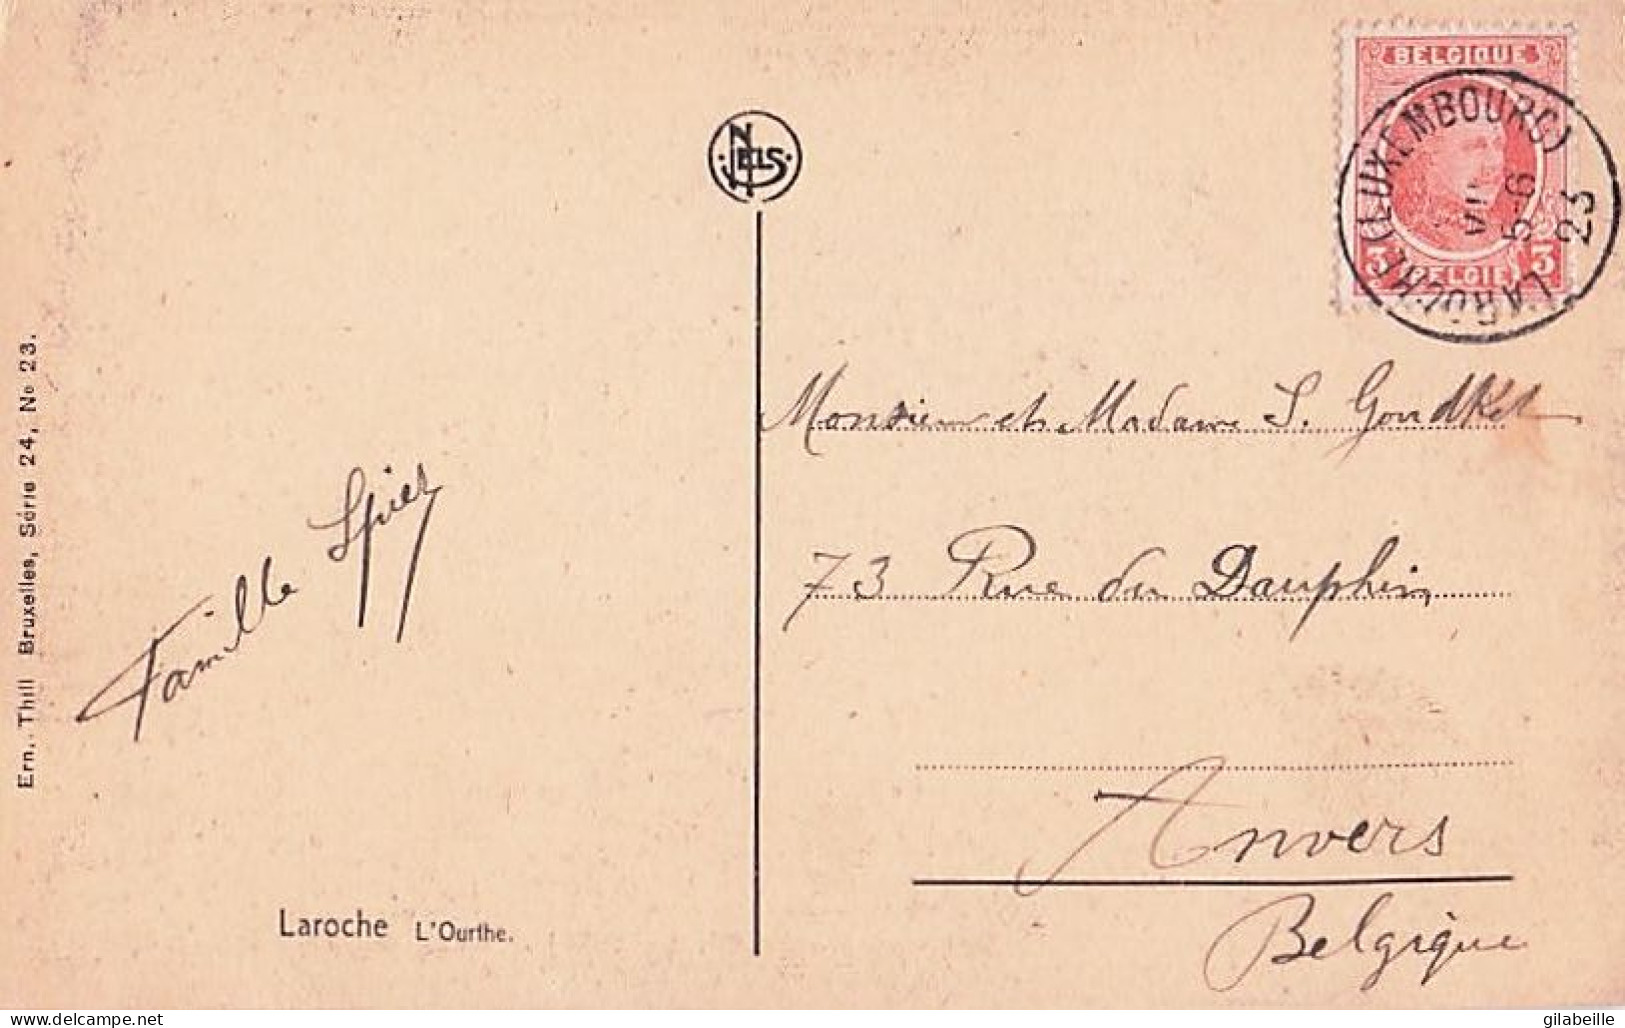 BELGIQUE
LAROCHE (LUXEMBOURG)
5-6
23
3 BELGIE 3
NELS
Monsieur et Madame S. Goudket
73 Rue du Dauphin,
Anvers
Belgique
Famille Spier
Laroche L'Ourthe.
Ern. Thill Bruxelles, Série 24, No 23.
delcampe.net
gilabeille